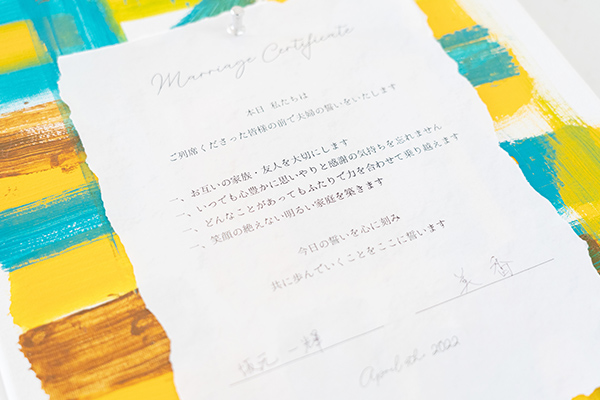 Marriage Certificate
本日 私たちは
ご列席くださった皆様の前で夫婦の誓いをいたします
一、お互いの家族・友人を大切にします
一、いつでも心豊かに思いやりと感謝の気持ちを忘れません
一、どんなことがあってもふたりで力を合わせて乗り越えます
一、笑顔の絶えない明るい家庭を築きます
今日の誓いを心に刻み
共に歩んでいくことをここに誓います
一輝
美香
April 2022